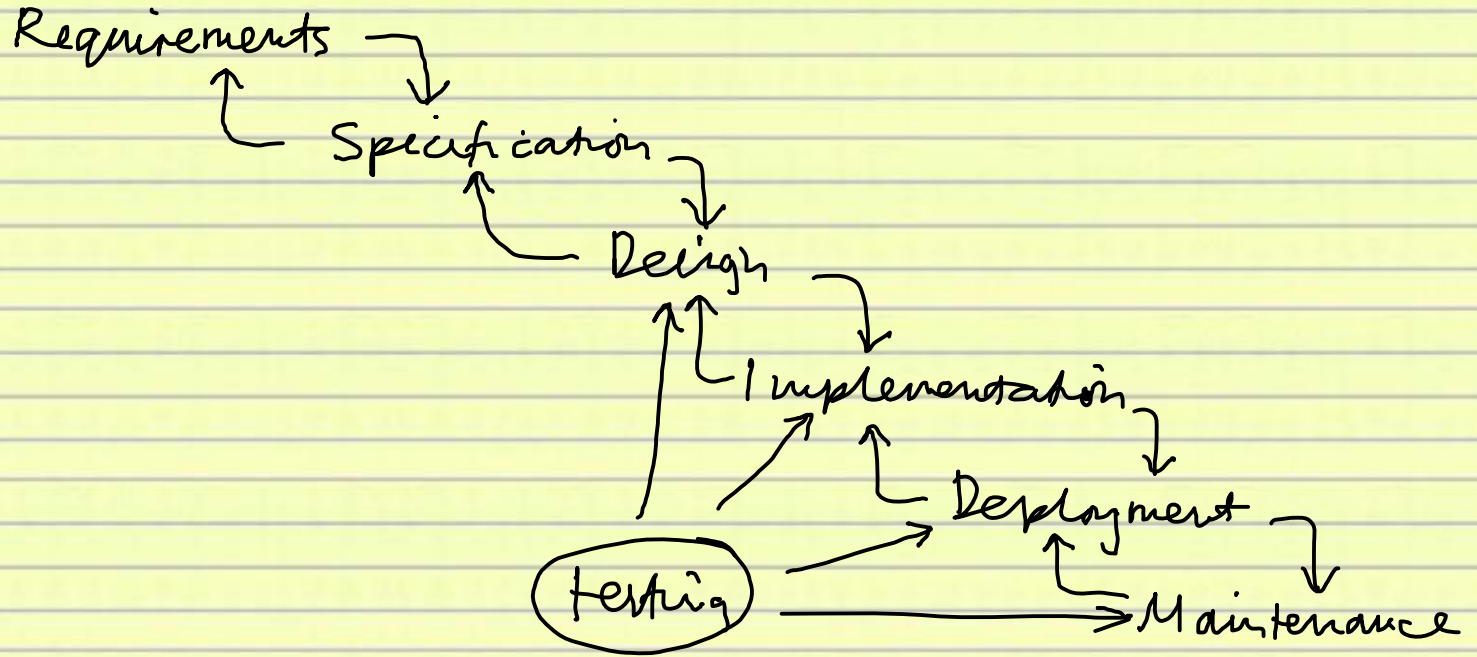 Requirements
Specification
Design
Implementation
Deployment
testing
Maintenance